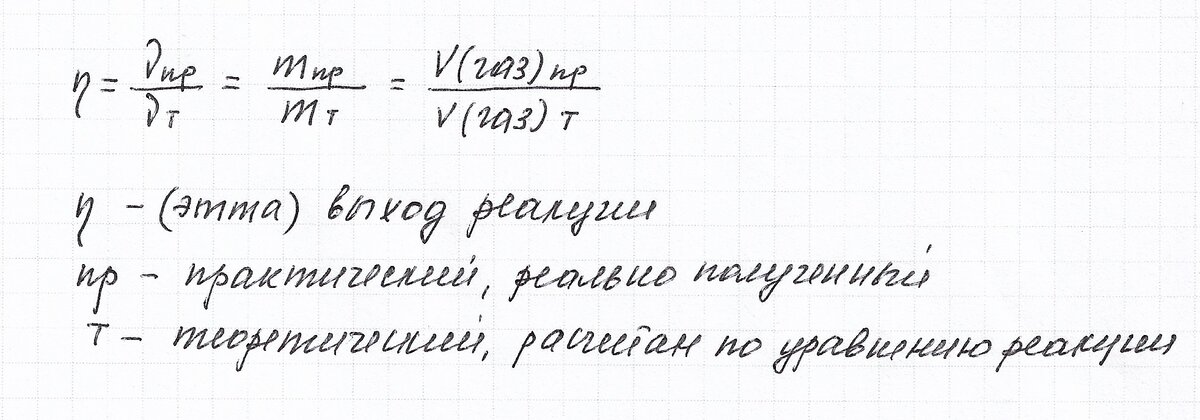 η = νпр/νт = mпр/mт = V(газ)пр/V(газ)т
η - (этта) выход реакции
пр - практический, реально полученный
т - теоретический, расчитан по уравнению реакции